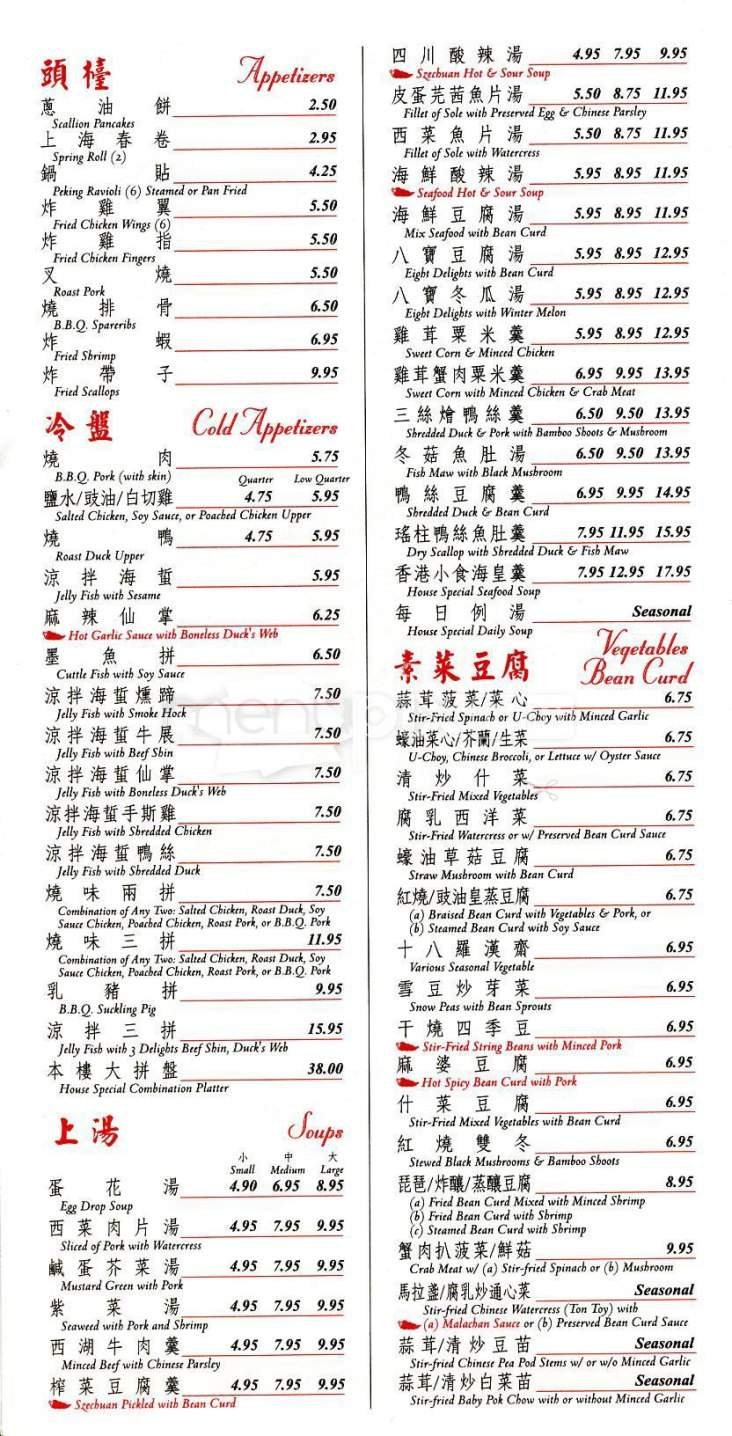 頭檯 Appetizers
蔥油餅 2.50
Scallion Pancakes
上海春卷 2.95
Spring Roll (2)
鍋貼 4.25
Peking Ravioli (6) Steamed or Pan Fried
炸雞翼 5.50
Fried Chicken Wings (6)
炸雞指 5.50
Fried Chicken Fingers
叉燒 5.50
Roast Pork
燒排骨 6.50
B.B.Q. Spareribs
炸蝦 6.95
Fried Shrimp
炸帶子 9.95
Fried Scallops
冷盤 Cold Appetizers
燒肉 5.75
B.B.Q. Pork (with skin) Quarter Low Quarter
鹽水/豉油/白切雞 4.75 5.95
Salted Chicken, Soy Sauce, or Poached Chicken Upper
燒鴨 4.75 5.95
Roast Duck Upper
涼拌海蜇 5.95
Jelly Fish with Sesame
麻辣仙掌 6.25
Hot Garlic Sauce with Boneless Duck's Web
墨魚拼 6.50
Cuttle Fish with Soy Sauce
涼拌海蜇燻蹄 7.50
Jelly Fish with Smoke Hock
涼拌海蜇牛展 7.50
Jelly Fish with Beef Shin
涼拌海蜇仙掌 7.50
Jelly Fish with Boneless Duck's Web
涼拌海蜇手斯雞 7.50
Jelly Fish with Shredded Chicken
涼拌海蜇鴨絲 7.50
Jelly Fish with Shredded Duck
燒味兩拼 7.50
Combination of Any Two: Salted Chicken, Roast Duck, Soy
Sauce Chicken, Poached Chicken, Roast Pork, or B.B.Q. Pork
燒味三拼 11.95
Combination of Any Two: Salted Chicken, Roast Duck, Soy
Sauce Chicken, Poached Chicken, Roast Pork, or B.B.Q. Pork
乳豬拼 9.95
B.B.Q. Suckling Pig
涼拌三拼 15.95
Jelly Fish with 3 Delights Beef Shin, Duck's Web
本樓大拼盤 38.00
House Special Combination Platter
上湯 Soups
小 中 大
Small Medium Large
蛋花湯 4.90 6.95 8.95
Egg Drop Soup
西菜肉片湯 4.95 7.95 9.95
Sliced of Pork with Watercress
鹹蛋芥菜湯 4.95 7.95 9.95
Mustard Green with Pork
紫菜湯 4.95 7.95 9.95
Seaweed with Pork and Shrimp
西湖牛肉羹 4.95 7.95 9.95
Minced Beef with Chinese Parsley
榨菜豆腐羹 4.95 7.95 9.95
Szechuan Pickled with Bean Curd
四川酸辣湯 4.95 7.95 9.95
Szechuan Hot & Sour Soup
皮蛋芫茜魚片湯 5.50 8.75 11.95
Fillet of Sole with Preserved Egg & Chinese Parsley
西菜魚片湯 5.50 8.75 11.95
Fillet of Sole with Watercress
海鮮酸辣湯 5.95 8.95 11.95
Seafood Hot & Sour Soup
海鮮豆腐湯 5.95 8.95 11.95
Mix Seafood with Bean Curd
八寶豆腐湯 5.95 8.95 12.95
Eight Delights with Bean Curd
八寶冬瓜湯 5.95 8.95 12.95
Eight Delights with Winter Melon
雞茸粟米羹 5.95 8.95 12.95
Sweet Corn & Minced Chicken
雞茸蟹肉粟米羹 6.95 9.95 13.95
Sweet Corn with Minced Chicken & Crab Meat
三絲燴鴨絲羹 6.50 9.50 13.95
Shredded Duck & Pork with Bamboo Shoots & Mushroom
冬菇魚肚湯 6.50 9.50 13.95
Fish Maw with Black Mushroom
鴨絲豆腐羹 6.95 9.95 14.95
Shredded Duck & Bean Curd
瑤柱鴨絲魚肚羹 7.95 11.95 15.95
Dry Scallop with Shredded Duck & Fish Maw
香港小食海皇羹 7.95 12.95 17.95
House Special Seafood Soup
每日例湯 Seasonal
House Special Daily Soup
素菜豆腐 Vegetables
Bean Curd
蒜茸菠菜/菜心 6.75
Stir-Fried Spinach or U-Choy with Minced Garlic
蠔油菜心/芥蘭/生菜 6.75
U-Choy, Chinese Broccoli, or Lettuce w/ Oyster Sauce
清炒什菜 6.75
Stir-Fried Mixed Vegetables
腐乳西洋菜 6.75
Stir-Fried Watercress or w/ Preserved Bean Curd Sauce
蠔油草菇豆腐 6.75
Straw Mushroom with Bean Curd
紅燒/豉油皇蒸豆腐 6.75
(a) Braised Bean Curd with Vegetables & Pork, or
(b) Steamed Bean Curd with Soy Sauce
十八羅漢齋 6.95
Various Seasonal Vegetable
雪豆炒芽菜 6.95
Snow Peas with Bean Sprouts
干燒四季豆 6.95
Stir-Fried String Beans with Minced Pork
麻婆豆腐 6.95
Hot Spicy Bean Curd with Pork
什菜豆腐 6.95
Stir-Fried Mixed Vegetables with Bean Curd
紅燒雙冬 6.95
Stewed Black Mushrooms & Bamboo Shoots
琵琶/炸釀/蒸釀豆腐 8.95
(a) Fried Bean Curd Mixed with Minced Shrimp
(b) Fried Bean Curd with Shrimp
(c) Steamed Bean Curd with Shrimp
蟹肉扒菠菜/鮮菇 9.95
Crab Meat w/ (a) Stir-fried Spinach or (b) Mushroom
馬拉盞/腐乳炒通心菜 Seasonal
Stir-fried Chinese Watercress (Ton Toy) with
(a) Malachan Sauce or (b) Preserved Bean Curd Sauce
蒜茸/清炒豆苗 Seasonal
Stir-fried Chinese Pea Pod Stems w/ or w/o Minced Garlic
蒜茸/清炒白菜苗 Seasonal
Stir-fried Baby Pok Chow with or without Minced Garlic